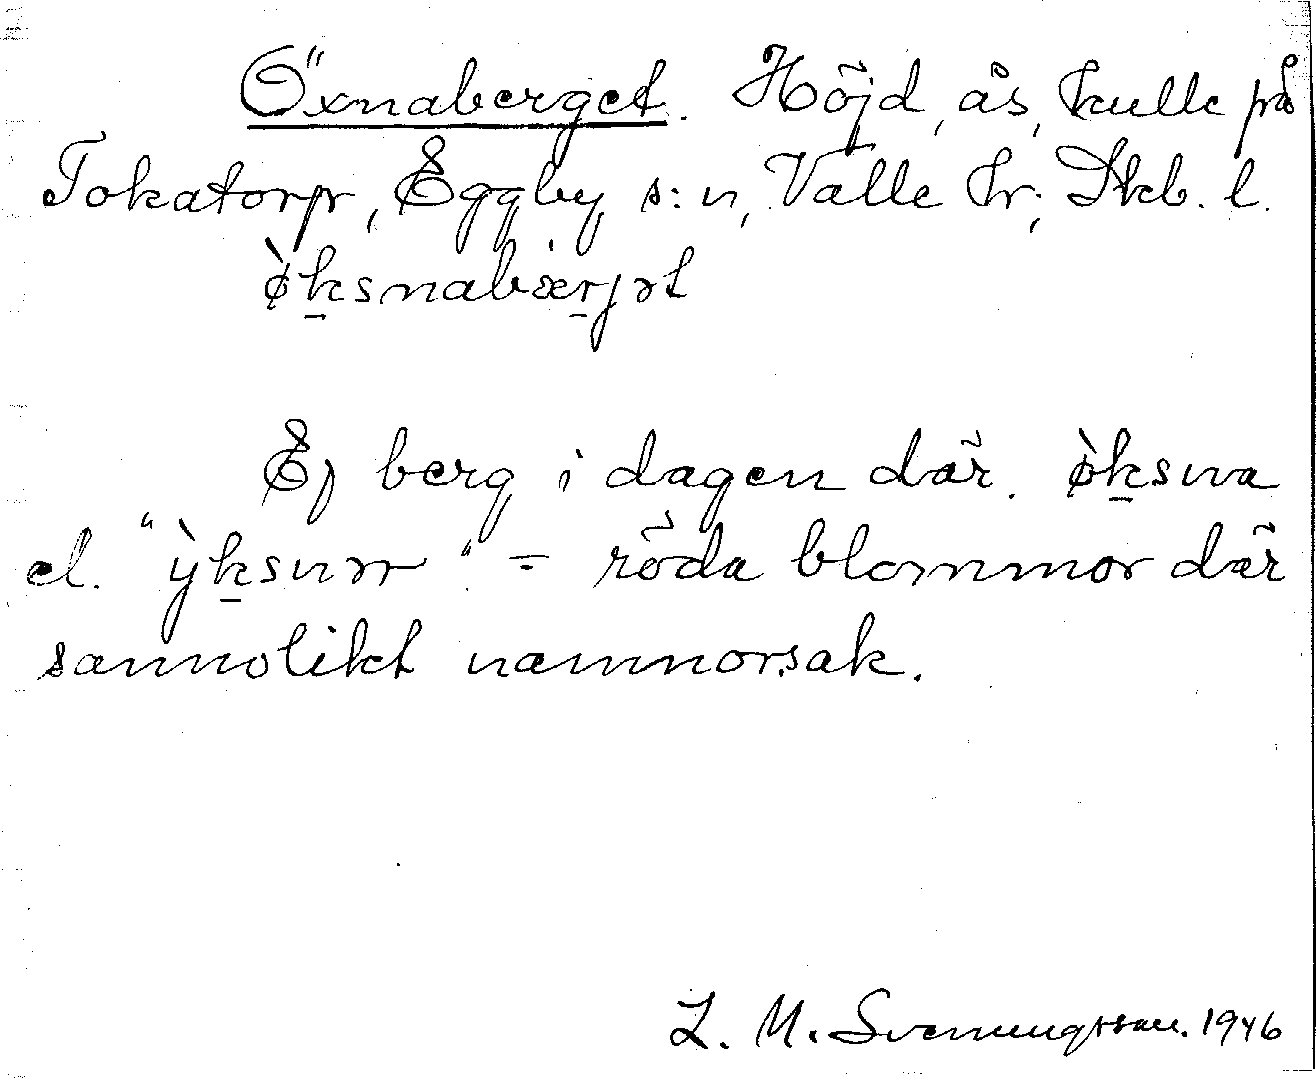 Öxnaberget. Höjd, ås, kulle på
Tokatorp, Eggby s:n, Valle hr, Skb. l.
ø̀ḵsnabæṟjət
Ej berg i dagen där. ø̀ḵsna
el. "ỳḵsnər" = röda blommor där
sannolikt namnorsak.
L. M. Svenungsson. 1946